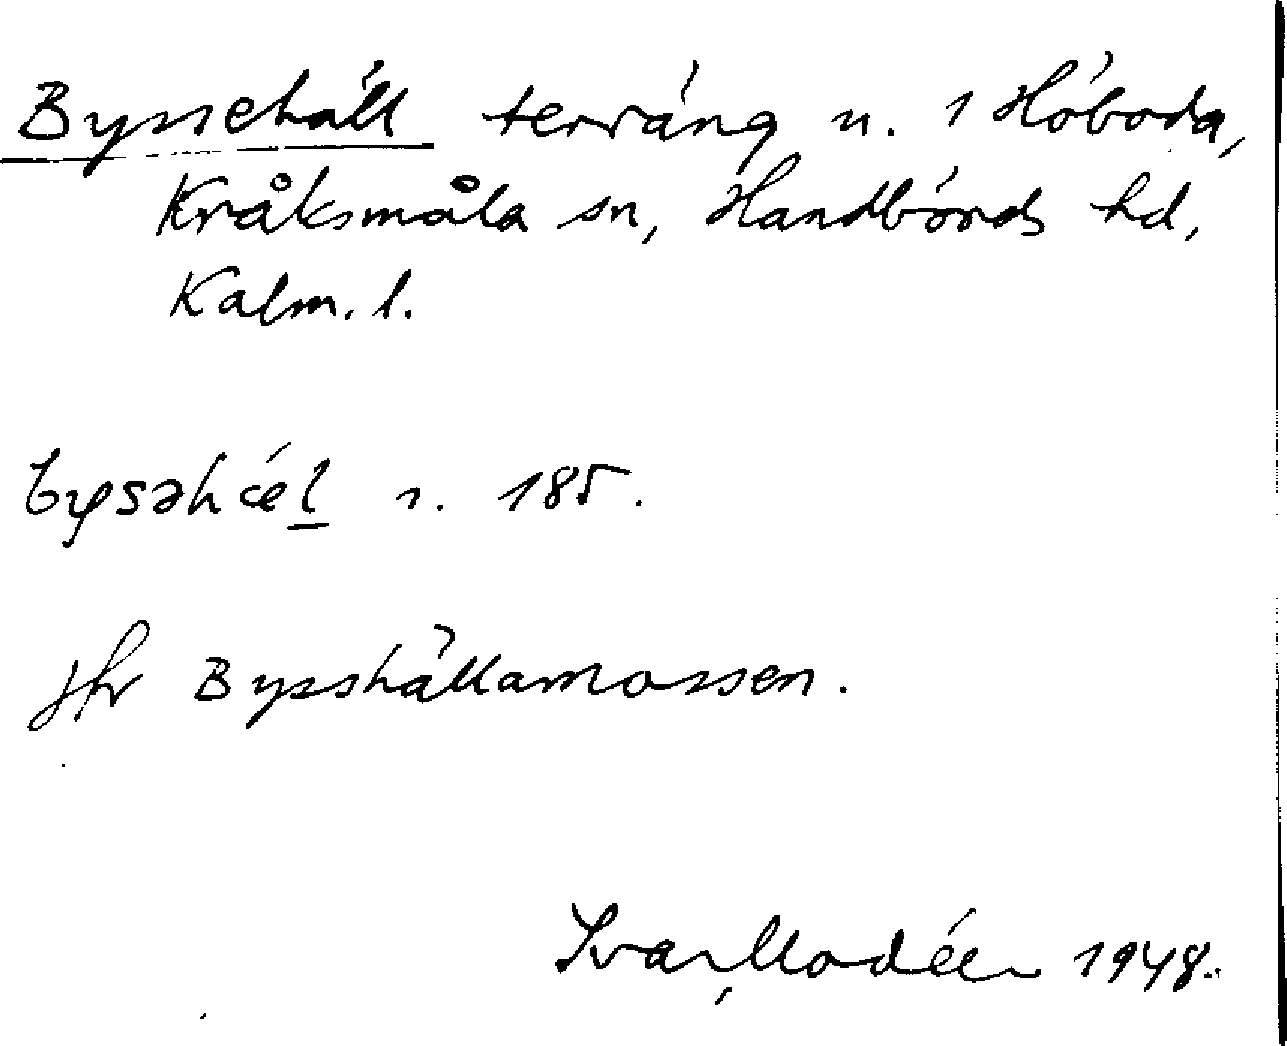 Byssehäll terräng n. i Höboda,
Kråksmåla sn, Handbörds hd,
Kalm. l.
bysəhǽl s. 185.
jfr Bysshällamossen.
Ivar Modéer 1948.